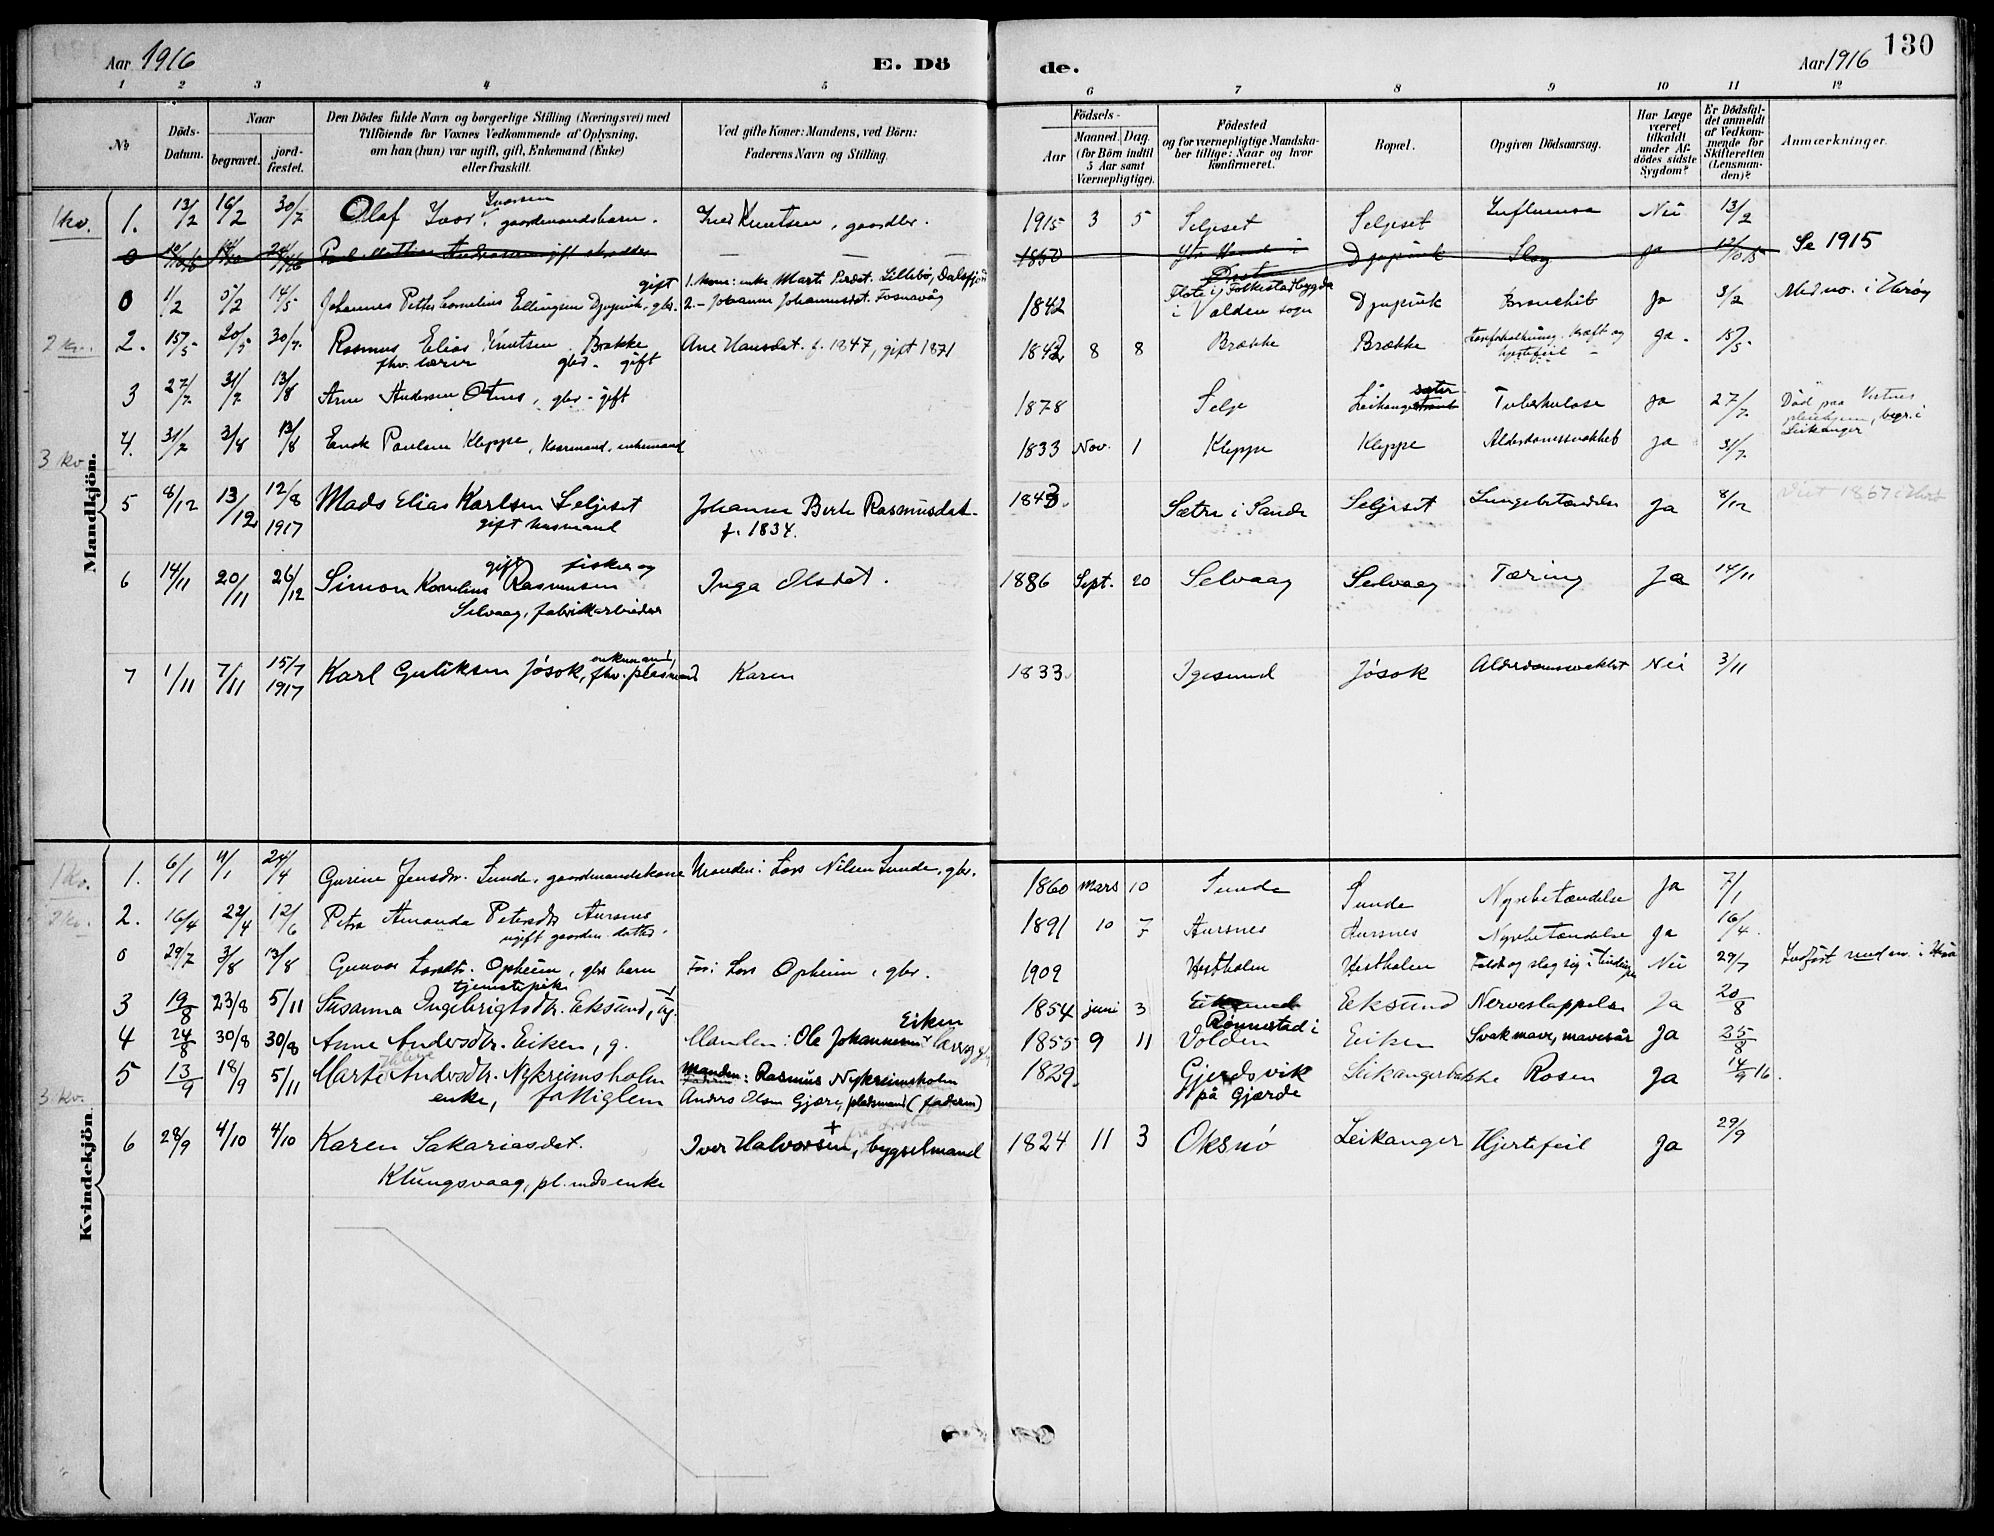 Aar 1916
E. Dö
de.
Aar 1916
130
1 2 3 4 5 6 7 8 9 10 11 12
No
Döds-Datum.
Naar
begravet.
jord-fæstet.
Den Dödes fulde Navn og borgerlige Stilling (Næringsvei) med
Tilföiende for Voxnes Vedkommende af Oplysning,
om han (hun) var ugift, gift, Enkemand (Enke)
eller fraskilt.
Ved gifte Koner: Mandens, ved Börn:
Faderens Navn og Stilling.
Födsels-
Aar
Maaned. Dag
(for Börn indtil
5 Aar samt
Værnepligtige).
Födested
og for værnepligtige Mandska-
ber tillige: Naar og hvor
konfirmeret.
Bopæl.
Opgiven Dödsaarsag.
Har Læge
været
tilkaldt
under Af-
dödes sidste
Sygdom?
Er Dödsfal-
det anmeldt
af Vedkom-
mende for
Skifteretten
(Lensman-
den)?
Anmærkninger.
Mandkjön.
1 kv.
1. 13/2 16/2 30/7 Olaf Ivar Ivarsen gaardmandsbarn. Knutsen, gaardbr. 1915 3 5 Seljeset Seljeset Influensa Nei 13/2
0 1850 Djupvik Slag Ja Se 1915
0 1/2 5/2 14/5 Johannes Petter Cornelius Ellingsen Djupvik, gbr. gift
1. kone: enke Marte Perdat. Lillebø, Dalsfjord
2. – Johanne Johannesdat. Fosnavåg
1842 Flote i Folkestadbygda
i Volden sogn Djupvik Bronchit Ja 3/2 Med no. i Herøy
2 kv.
2. 15/5 20/5 30/7. Rasmus Elias Knutsen Brække
fhv. lærer gbr. gift
Ane Hansdat. f. 1847, gift 1871 8 8 Brække Brække kræft og
hjertefeil Ja. 15/5
3 27/7 31/7 13/8 Arne Andersen Otnes, gbr. gift 1878 Selje Tuberkulose Ja 27/7. Død paa
pleiehjem, begr. i
Leikanger
3 kv.
4. 31/7 3/8 13/8 Enok Paulsen Kleppe, Kaarmand, enkemand 1833 Nov. 1 Kleppe Kleppe Alderdomssvakhet Ja 31/7.
5 8/12 13/12 12/8 1917 Mads Elias Karlsen Seljeset
gift husmand
Johanne Berte Rasmusdat.
f. 1834.
1843. Sætre i Sande Seljeset Lungebetændelse Ja 8/12
6 14/11 20/11 26/12 Simon Kornelius Rasmussen gift fisker og
Selvaag, fabrikarbeider
Inga Olsdat. 1886 Sept. 20 Selvaag Selvaag Tæring Ja 14/11
7 1/11 7/11 15/7 1917 Karl Gutiksen Jøsok, enkemand, fhv. plasmand Karen 1833. Igesund Jøsok Alderdomssvakhet Nei 3/11
Kvindekjön
1 kv.
1. 6/1 11/1 24/4 Gurine Jensdtr. Sunde, gaardmandskone Manden: Lars Nilsen Sunde, gbr. 1860 Mars 10 Sunde Sunde Nyrebetændelse Ja 7/1
2 kv.
2. 16/4 22/4 12/6 Petra Amanda Petersdtr Aursnes
ugift gaardm. datter.
1891 10 7 Aursnes Aursnes Nyrebetændelse Ja 16/4.
0 29/7 3/8 13/8 Gunvor Larsdtr. Opheim, gbr barn Far: Lars Opheim, gbr. 1909 Hestholm Hestholm Faldt og slog sig i Nei 29/7
tjenestepike
3 19/8 23/8 5/11 Susanna Ingebrigtsdtr. Eeksund, ug. 1854 juni 3 Eeksund Nerveslappelse Ja 20/8
4 24/8 30/8 30/8 Anne Andersdtr. Eiken, g. Manden: Ole Johannessen Eiken 1855 9 11 Rønnestad i
Volden Eiken Svak mave, mavesår Ja 25/8
3 kv.
5 13/9 18/9 5/11 Marte Andersdtr. Nykreimsholm
enke, fattiglem
Manden: Rasmus Nykreimsholm
Anders Olsen Gjære, pladsmand (faderen)
1829. Gjerdsvik
på Gjærde Leikangerbakke Rosen Ja 14/9 16.
6 28/9 4/10 4/10 Karen Sakariasdat.
Klungsvaag, pl. mds enke
Iver Halvorsen, bygselmand 1824 11 3 Oksnø Leikanger Hjertefeil Ja 29/9